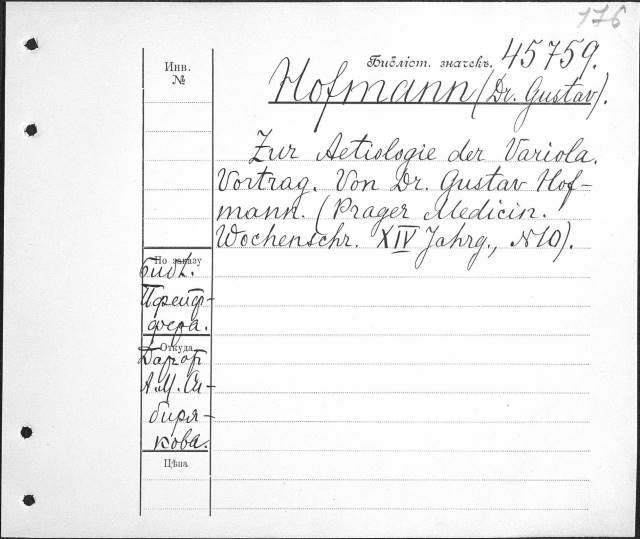 176
Инв.
№
Библіот. значекъ. 45759.
Hofmann (Dr. Gustav).
Zur Aetiologie der Variola.
Vortrag. Von Dr. Gustav Hof-
mann. (Prager Medicin.
Wochenschr. XIV Jahrg., N10).
По заказу
Библ.
Пфейф-
фера.
Откуда
Дар от
А.М. Си-
биря-
кова.
Цѣна